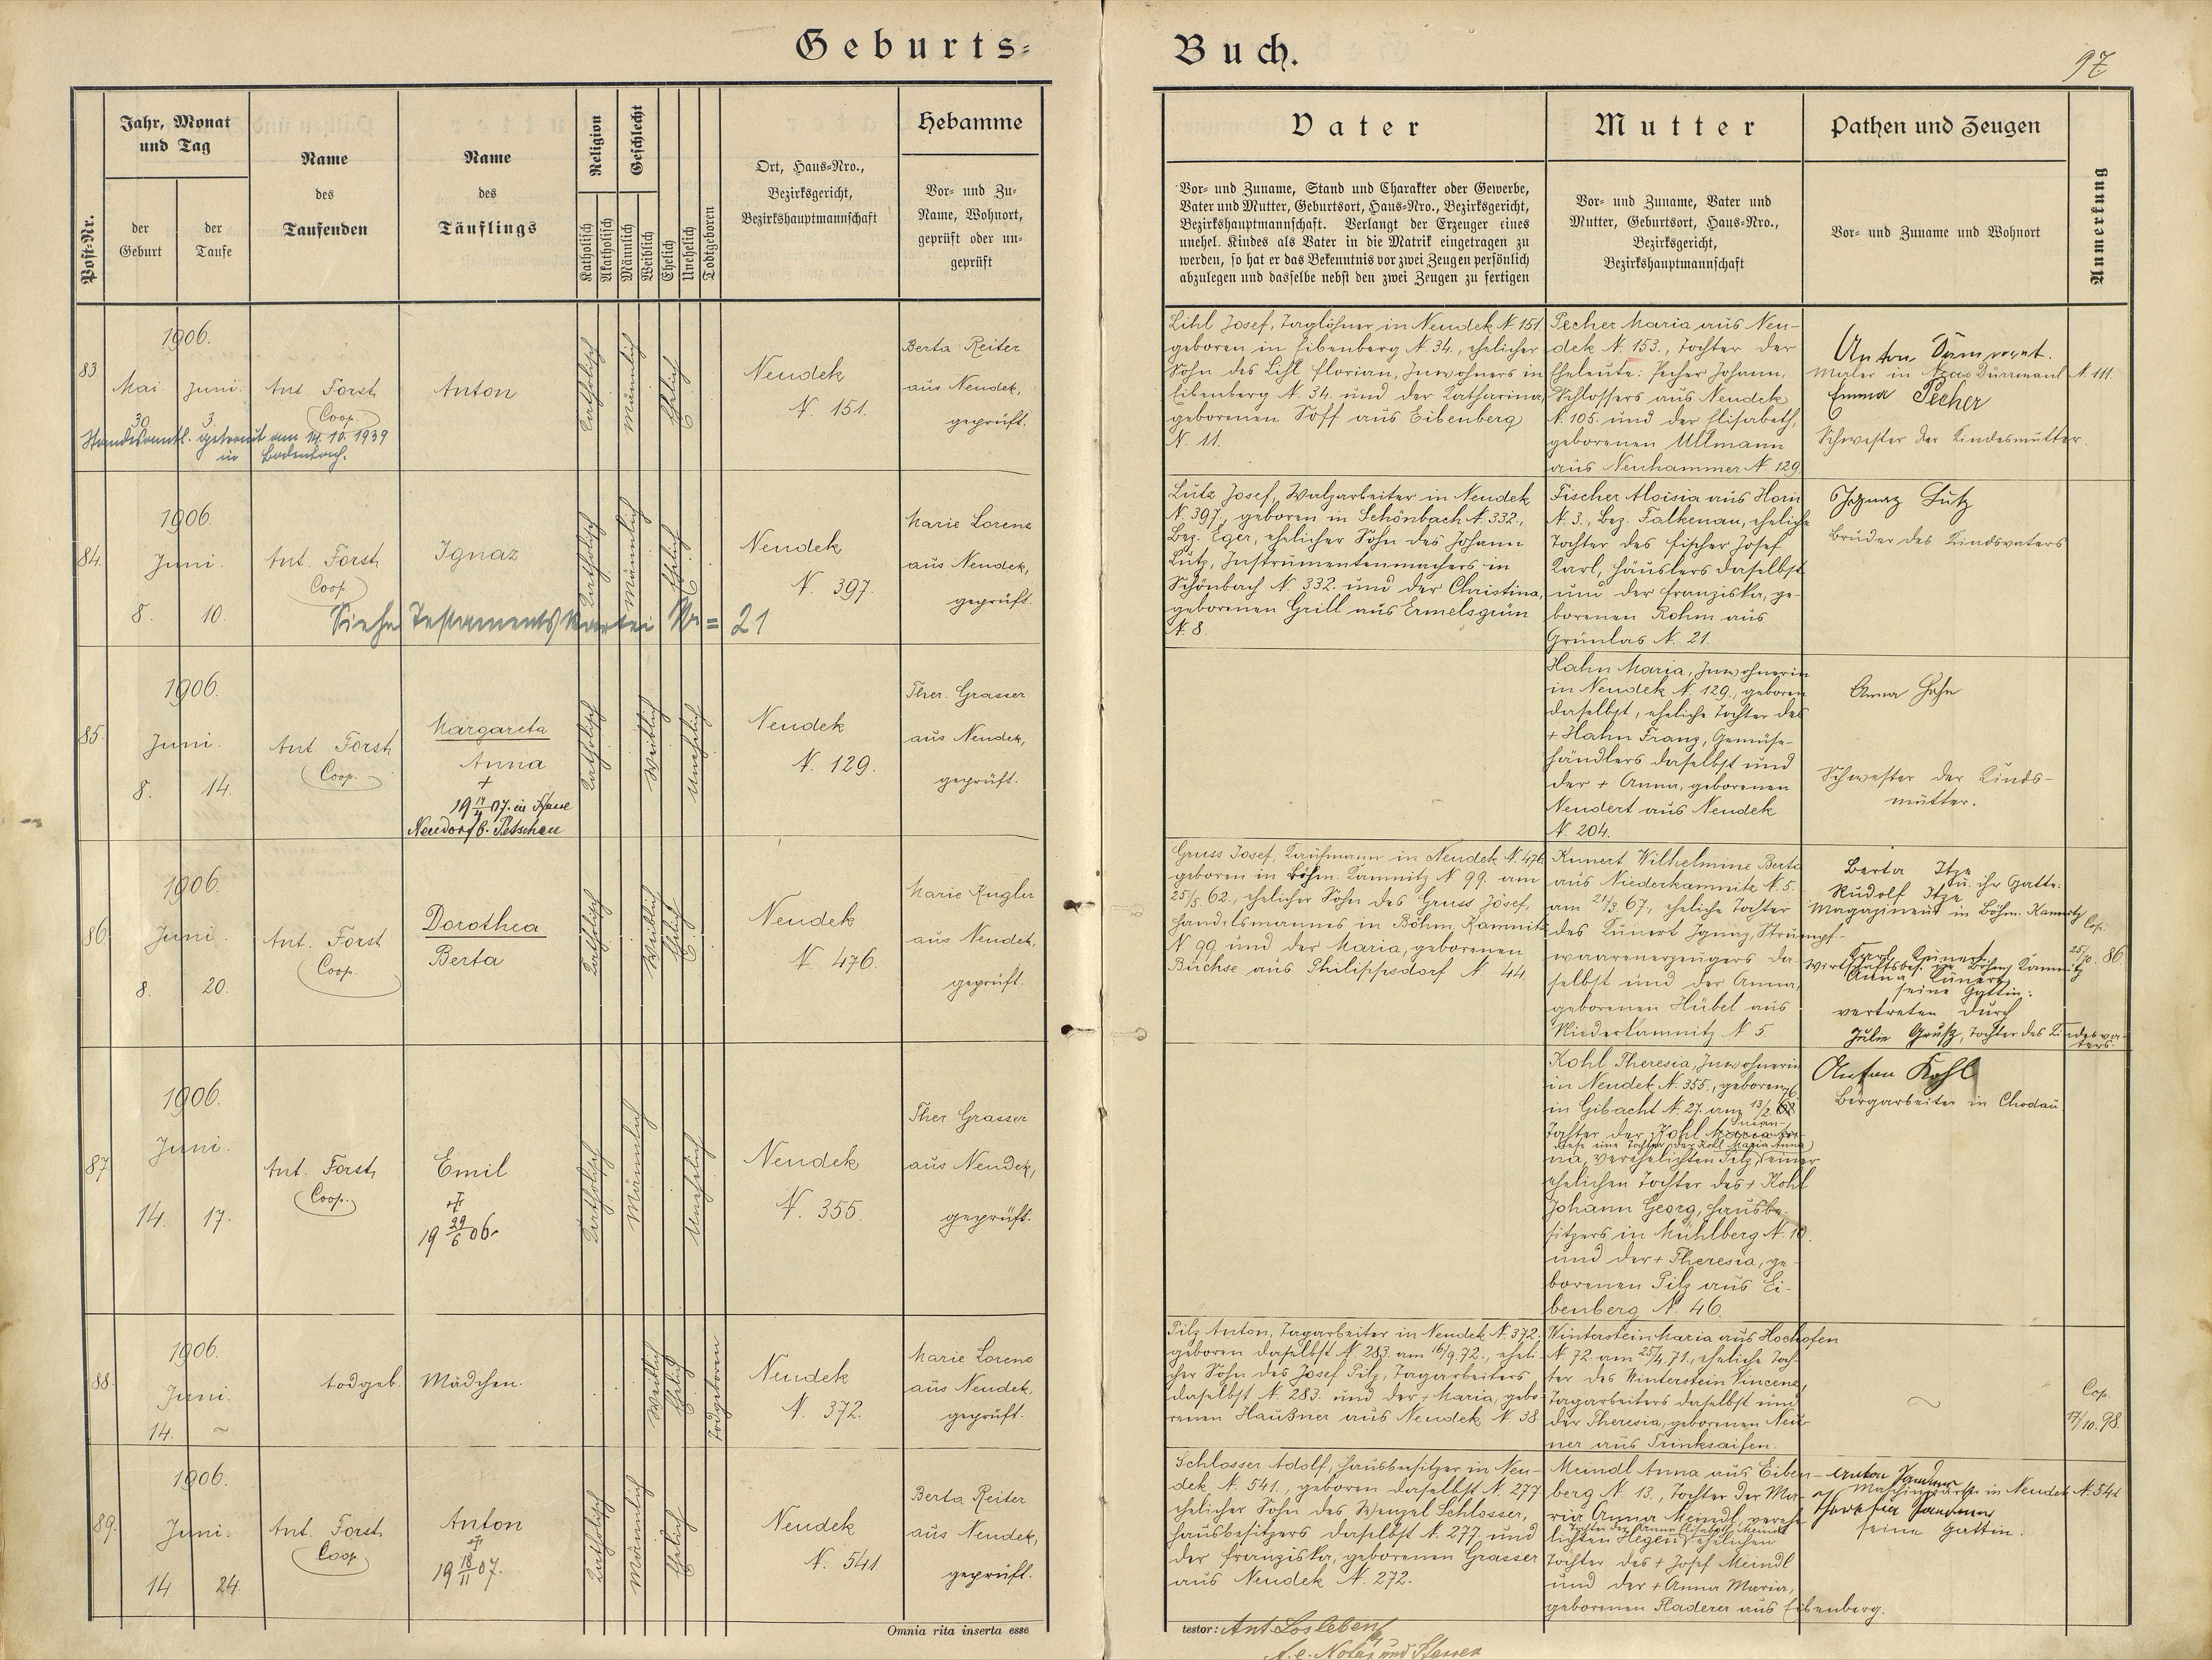 Geburts-
Buch.
97
Post-Nr.
Jahr, Monat
und Tag
der
Geburt
der
Taufe
Name
des
Taufenden
Name
des
Täuflings
Religion
Katholisch
Akatholisch
Geschlecht
Männlich
Weiblich
Ehelich
Unehelich
Todtgeboren
Ort, Haus-Nro.,
Bezirksgericht,
Bezirkshauptmannschaft
Hebamme
Vor- und Zu-
Name, Wohnort,
geprüft oder un-
geprüft
Vater
Vor- und Zuname, Stand und Charakter oder Gewerbe,
Vater und Mutter, Geburtsort, Haus-Nro., Bezirksgericht,
Bezirkshauptmannschaft. Verlangt der Erzeuger eines
unehel. Kindes als Vater in die Matrik eingetragen zu
werden, so hat er das Bekenntnis vor zwei Zeugen persönlich
abzulegen und dasselbe nebst den zwei Zeugen zu fertigen
Mutter
Vor- und Zuname, Vater und
Mutter, Geburtsort, Haus-Nro.,
Bezirksgericht,
Bezirkshauptmannschaft
Pathen und Zeugen
Vor- und Zuname und Wohnort
Anmerkung
83
1906.
Mai Juni
30 3.
Ant. Forst
Coop.
Anton
Katholisch
Männlich
Ehelich
Neudek
N. 151.
Berta Reiter
aus Neudek,
geprüft.
Standesamtl. getraut am 14.10.1939
in Bodenbach.
Lihl Josef, Taglöhner in Neudek N. 151.
geboren in Eibenberg N. 34., ehelicher
Sohn des Lihl Florian, Inwohners in
Eibenberg N. 34. und der Katharina,
geborenen Soff aus Eibenberg
N. 11.
Pecher Maria aus Neu-
dek N. 153., Tochter der
Eheleute: Pecher Johann,
Schlossers aus Neudek
N. 105. und der Elisabeth,
geborenen Ullmann
aus Neuhammer N. 129.
Anton
Maler in N. 111.
Emma Pecher
Schwester der Kindesmutter.
84.
1906.
Juni.
8. 10.
Ant. Forst
Coop.
Ignaz
Katholisch
Männlich
Ehelich
Neudek
N. 397.
Marie Lorenz
aus Neudek,
geprüft.
Siehe Testamentskartei Nr = 21
Lutz Josef, Walzarbeiter in Neudek
N. 397., geboren in Schönbach N. 332.,
Bez. Eger, ehelicher Sohn des Johann
Lutz, Instrumentenmachers in
Schönbach N. 332. und der Christina,
geborenen Grill aus Ermelsgrün
N. 8.
Fischer Aloisia aus Horn
N. 3., Bez. Falkenau, eheliche
Tochter des Fischer Josef
Karl, Häuslers daselbst
und der Franziska, ge-
borenen Rohm aus
Grünlas N. 21.
Ignaz Lutz
Bruder des Kindsvaters
85.
1906.
Juni.
8. 14.
Ant. Forst
Coop.
Margareta
Anna
+
19 07. in
Neudorf b. Petschau
Katholisch
Weiblich
Unehelich
Neudek
N. 129.
Ther. Grasser
aus Neudek,
geprüft.
Hahn Maria, Inwohnerin
in Neudek N. 129., geboren
daselbst, eheliche Tochter des
+ Hahn Franz, Gemüse-
händlers daselbst und
der + Anna, geborenen
Neudert aus Neudek
N. 204.
Anna Hahn
Schwester der Kinds-
mutter.
86.
1906.
Juni.
8. 20.
Ant. Forst
Coop.
Dorothea
Berta
Katholisch
Weiblich
Ehelich
Neudek
N. 476.
Marie Kugler
aus Neudek,
geprüft.
Gruss Josef, Kaufmann in Neudek N. 476
geboren in Böhm. Kamnitz N 99. am
25/5. 62., ehelicher Sohn des Gruss Josef,
Handelsmannes in Böhm. Kamnitz
N 99. und der Maria, geborenen
Büchse aus Philippsdorf N. 44.
Kunert Wilhelmine Berta
aus Niederkamnitz N. 5.
am 21/3. 67., eheliche Tochter
des Kunert Ignaz, Strumpf-
waarenerzeugers da-
selbst und der Anna,
geborenen Hübel aus
Niederkamnitz N 5.
Berta Itze
Rudolf Itze u. ihr Gatte.
Magazineur in Böhm. Kamnitz
Karl Kunert
Wirtschaftsbes. in Böhm. Kamnitz
Anna Kunert
seine Gattin:
vertreten durch
Julie Gruß, Tochter des Kindesva-
ters.
Cop.
25/10. 86
87.
1906.
Juni.
14. 17.
Ant. Forst
Coop.
Emil
+
19 29/6 06.
Katholisch
Männlich
Unehelich
Neudek
N. 355.
Ther. Grasser
aus Neudek,
geprüft.
Kohl Theresia, Inwohnerin
in Neudek N. 355., geboren
in Gibacht N. 27. am 13/2.
Tochter der Kohl
diese eine Tochter der Kohl Maria Anna
na, verehelichten Pilz, einer
ehelichen Tochter des + Kohl
Johann Georg, Hausbe-
sitzers in Mühlberg N. 10.
und der + Theresia, ge-
borenen Pilz aus Ei-
benberg N. 46.
Anton Kohl
Bergarbeiter in Chodau
88.
1906.
Juni.
14. ~
todgeb. Mädchen.
Weiblich
Ehelich
Todgeboren
Neudek
N. 372.
Marie Lorenz
aus Neudek,
geprüft.
Pilz Anton, Tagarbeiter in Neudek N. 372.
geboren daselbst N 283. am 16/9. 72., eheli-
cher Sohn des Josef Pilz, Tagarbeiters
daselbst N. 283. und der + Maria, gebo-
renen Haußner aus Neudek N 38
Winterstein Maria aus Hochofen
N. 72. am 25/4. 71., eheliche Toch-
ter des Winterstein Vincenz,
Tagarbeiters daselbst und
der Theresia, geborenen Neu-
ner aus Trinksaifen.
~
Cop.
17/10. 98.
89.
1906.
Juni.
14 24.
Ant. Forst
Coop
Anton
+
19 18/11 07.
Katholisch
Männlich
Ehelich
Neudek
N. 541
Berta Reiter
aus Neudek,
geprüft.
Schlosser Adolf, Hausbesitzer in Neu-
dek N. 541., geboren daselbst N. 277
ehelicher Sohn des Wenzel Schlosser,
Hausbesitzers daselbst N. 277. und
der Franziska, geborenen Grasser
aus Neudek N. 272.
Meindl Anna aus Eiben-
berg N. 13., Tochter der Ma-
ria Anna Meindl, verehe-
Tochter der Anna Elisabeth Meindl
lichten Hegen, ehelichen
Tochter des + Josef Meindl
und der + Anna Maria,
geborenen Fladerer aus Eibenberg.
Anton
in Neudek N. 541
Theresia
seine Gattin.
Omnia rita inserta esse
testor: Ant. Losleben